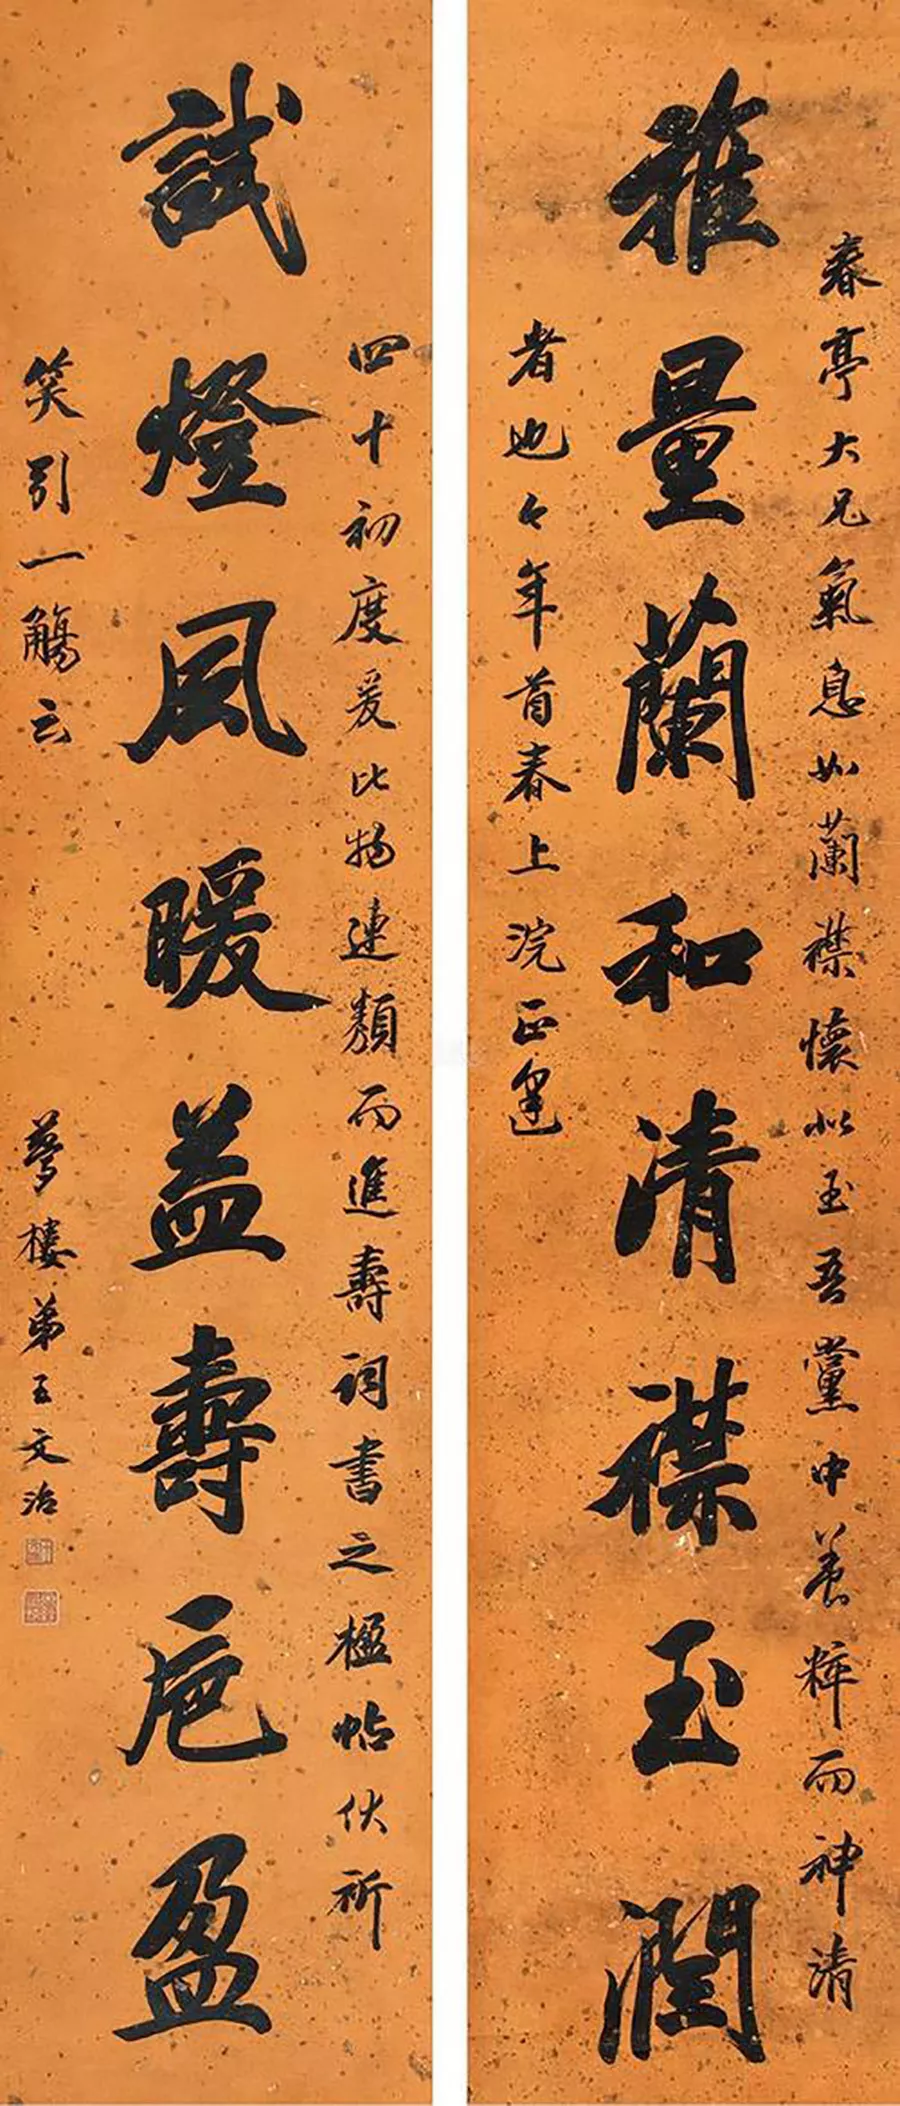 春亭大兄氣息如蘭襟懷似玉吾黨中養粹而神清
雅量蘭和清襟玉潤
者也今年首春上浣正逢
四十初度爰比物連類而進壽詞書之楹帖伏祈
試燈風暖益壽卮盈
笑引一觴云
夢樓弟王文治